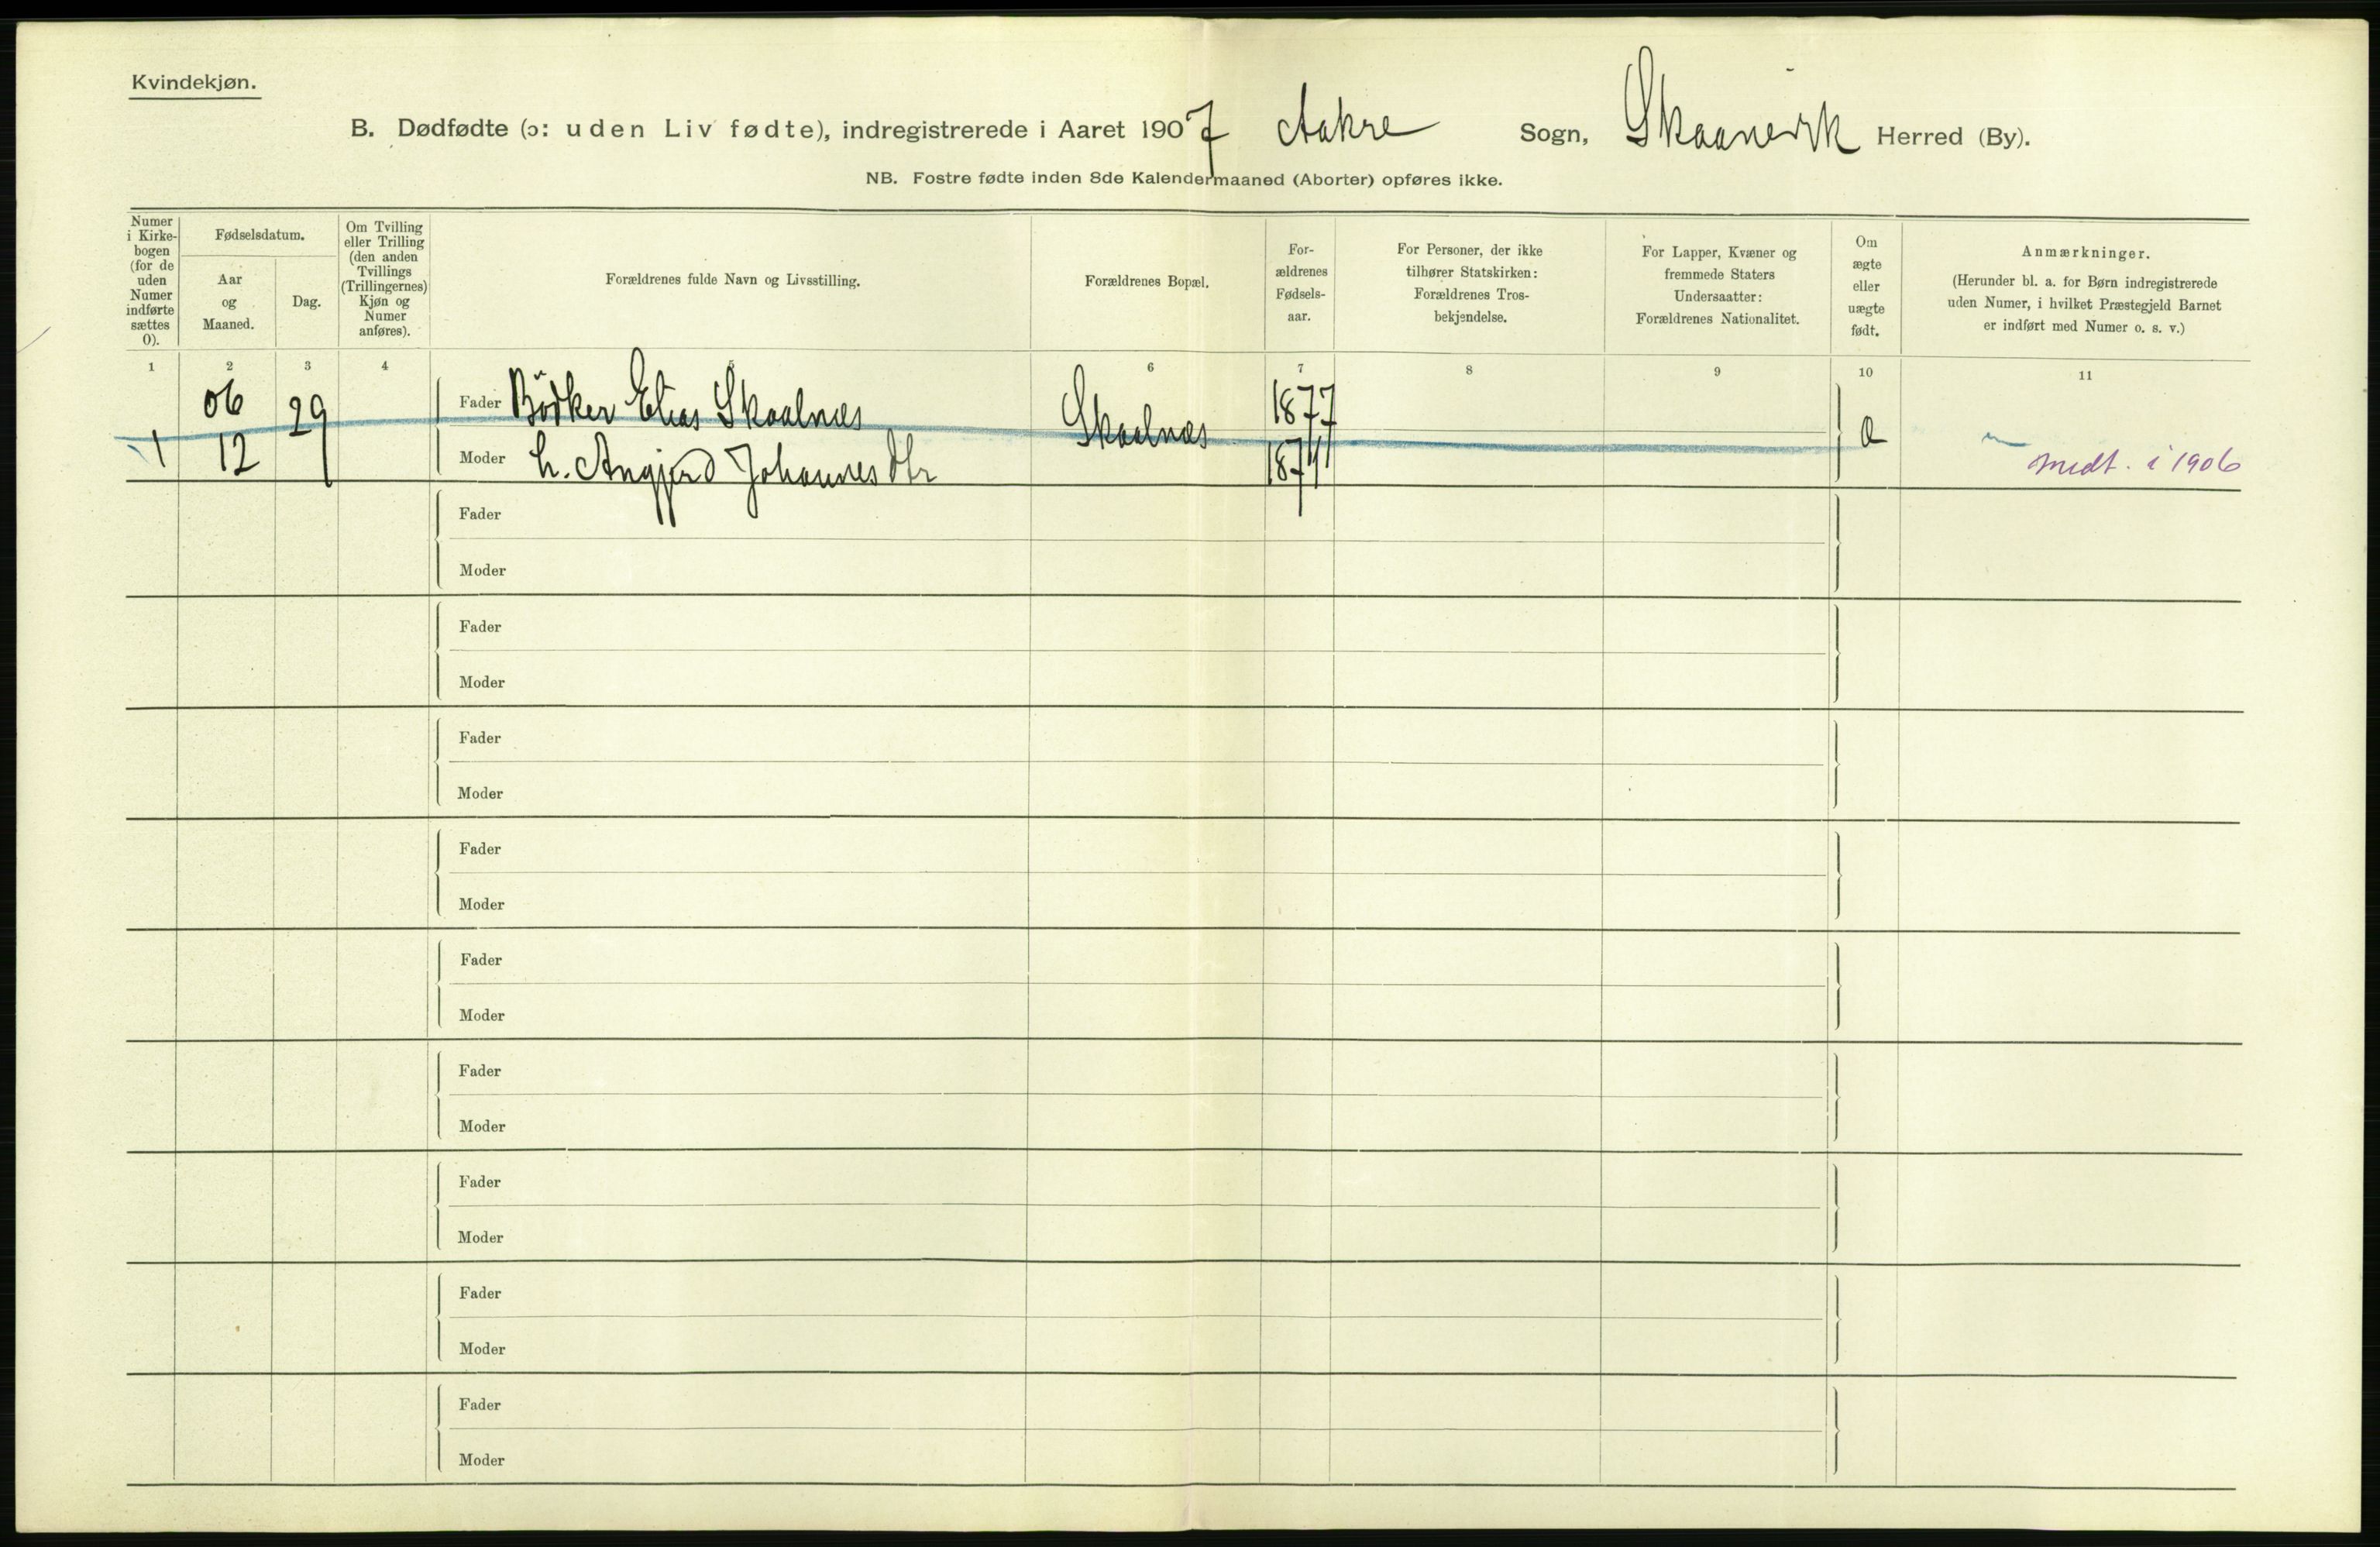 Kvindekjøn.
B. Dødfødte (ɔ: uden Liv fødte), indregistrerede i Aaret 1907 Aakre Sogn, Skaanevik Herred (By).
NB. Fostre fødte inden 8de Kalendermaaned (Aborter) opføres ikke.
Numer i Kirkebogen (for de uden Numer indførte sættes 0).
Fødselsdatum.
Aar og Maaned.
Dag.
Om Tvilling eller Trilling (den anden Tvillings (Trillingernes) Kjøn og Numer anføres).
Forældrenes fulde Navn og Livsstilling.
Forældrenes Bopæl.
Forældrenes Fødselsaar.
For Personer, der ikke tilhører Statskirken: Forældrenes Trosbekjendelse.
For Lapper, Kvæner og fremmede Staters Undersaatter: Forældrenes Nationalitet.
Om ægte eller uægte født.
Anmærkninger.
(Herunder bl. a. for Børn indregistrerede uden Numer, i hvilket Præstegjeld Barnet er indført med Numer o. s. v.)
1 2 3 4 5 6 7 8 9 10 11
06 29 Fader Bödker Elias Skaalnæs Skaalnæs 1877
1 12 Moder h. Angjerd Johannes Dtr Æ medt. i 1906
Fader
Moder
Fader
Moder
Fader
Moder
Fader
Moder
Fader
Moder
Fader
Moder
Fader
Moder
Fader
Moder
Fader
Moder